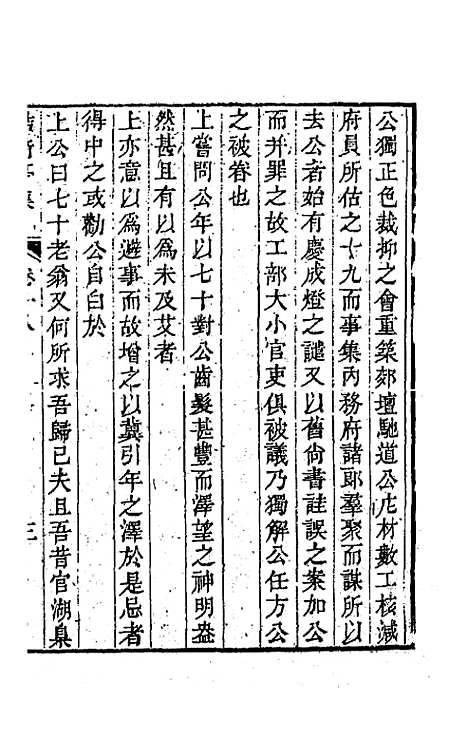 公獨正色裁抑之會重築郊壇馳道公庀材數工核減
府員所估之十九而事集內務府諸郎羣聚而謀所以
去公者始有慶成燈之譴又以舊尙書詿誤之案加公
而并罪之故工部大小官吏俱被議乃獨解公任方公
之被眷也
上嘗問公年以七十對公齒髮甚豐而澤望之神明盎
然甚且有以爲未及艾者
上亦意以爲避事而故增之以冀引年之澤於是忌者
得中之或勸公自白於
上公曰七十老翁又何所求吾歸已夫且吾昔官湖臬
亭集 卷十八 三